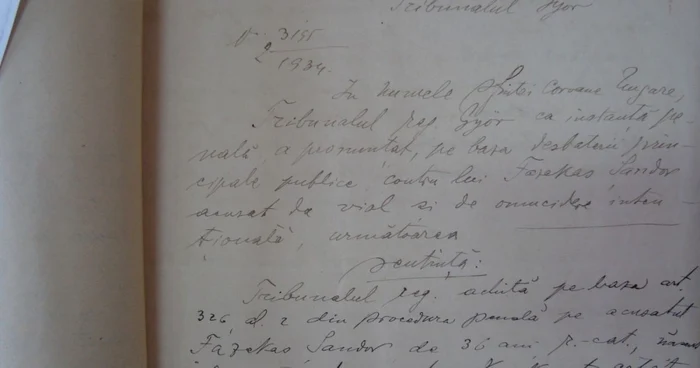 Tribunalul Györ
Nr. 3155
2
1934.
In numele Sfintei Coroane Ungare,
Tribunalul reg. Györ ca instanță pe-
nală, a pronunțat, pe baza desbaterii prin-
cipale publice, contra lui Fazekas Sandor
acuzat de viol si de omucidere inten-
țională, următoarea
sentință:
Tribunalul reg. achită pe baza art.
326, al. 2 din procedura penală pe acusatul
Fazekas Sandor de 36 ani r.-cat.,